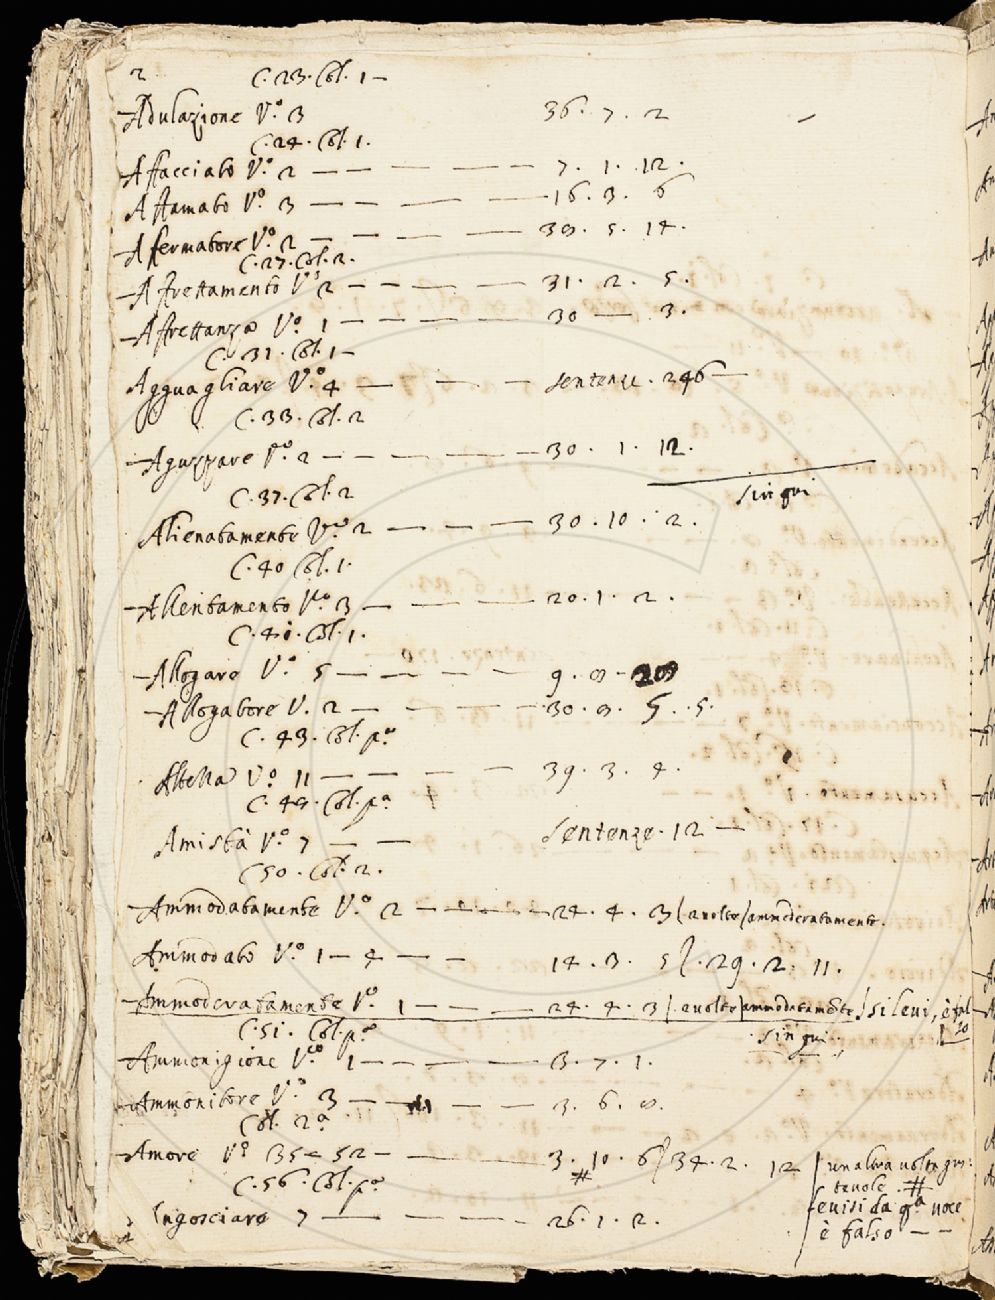 2 C. 23. Col. 1 —
Adulazione V.º 3 36. 7. 2 —
C. 24. Col. 1.
Affacciato V.º 2 — — — — — 7. 1. 12.
Affamato V.º 3 — — — — 16. 3. 6
Afermatore V.º 2 — — — — 5. 14.
C. 27. Col. 2.
Affrettamento V.º 2 — — — — — 31. 2. 5.
Affrettanza V.º 1 — — — — — 30 — 3.
C. 31. Col. 1 —
Agguagliare V.º 4 — — — sentenze. 246 —
C. 33. Col. 2
Aguzzare V.º 2 — — — — — 30. 1. 12.
sin qui
C. 37. Col. 2
Alienatamente V.º 2 — — — — 30. 10. 2.
C. 40 Col. 1.
Allentamento V.º 3 — — — — 20. 1. 2.
C. 41. Col. 1.
Allogare V.º 5 — — — — — 9. 8 —
Allogatore V. 2 — — — — 30. 8. 5. 5.
C. 43. Col. pº
V.º 11 — — — — 39. 3. 4.
C. 49. Col. pª
Amistà V.º 7 — — sentenze. 12 —
C 50. Col. 2.
Ammodatamente V.º 2 — — — — 24. 4. 3 ( a volte) ammoderatamente.
Ammodato V.º 1 — 4 — — 14. 3. 5 /. 29. 2. 11.
Ammoderatamente V.º 1 — — — 24. 4. 3 (. a volte) ammodatamente / si levi, è falso
C. 51. Col. pº
sin qui
Ammonizione V.º 1 — — — — 3. 7. 1.
Ammonitore V.º 3 — — — 3. 6. 8.
Col. 2ª
Amore Vº 35 e 52 — — — 3. 10. 6 / 34. 2. 12 / un altra volta
# tavole. #
C. 56. Col. pº levisi da qª voce
Ingosciare 7 — — — — 26. 1. 2. è falso — —